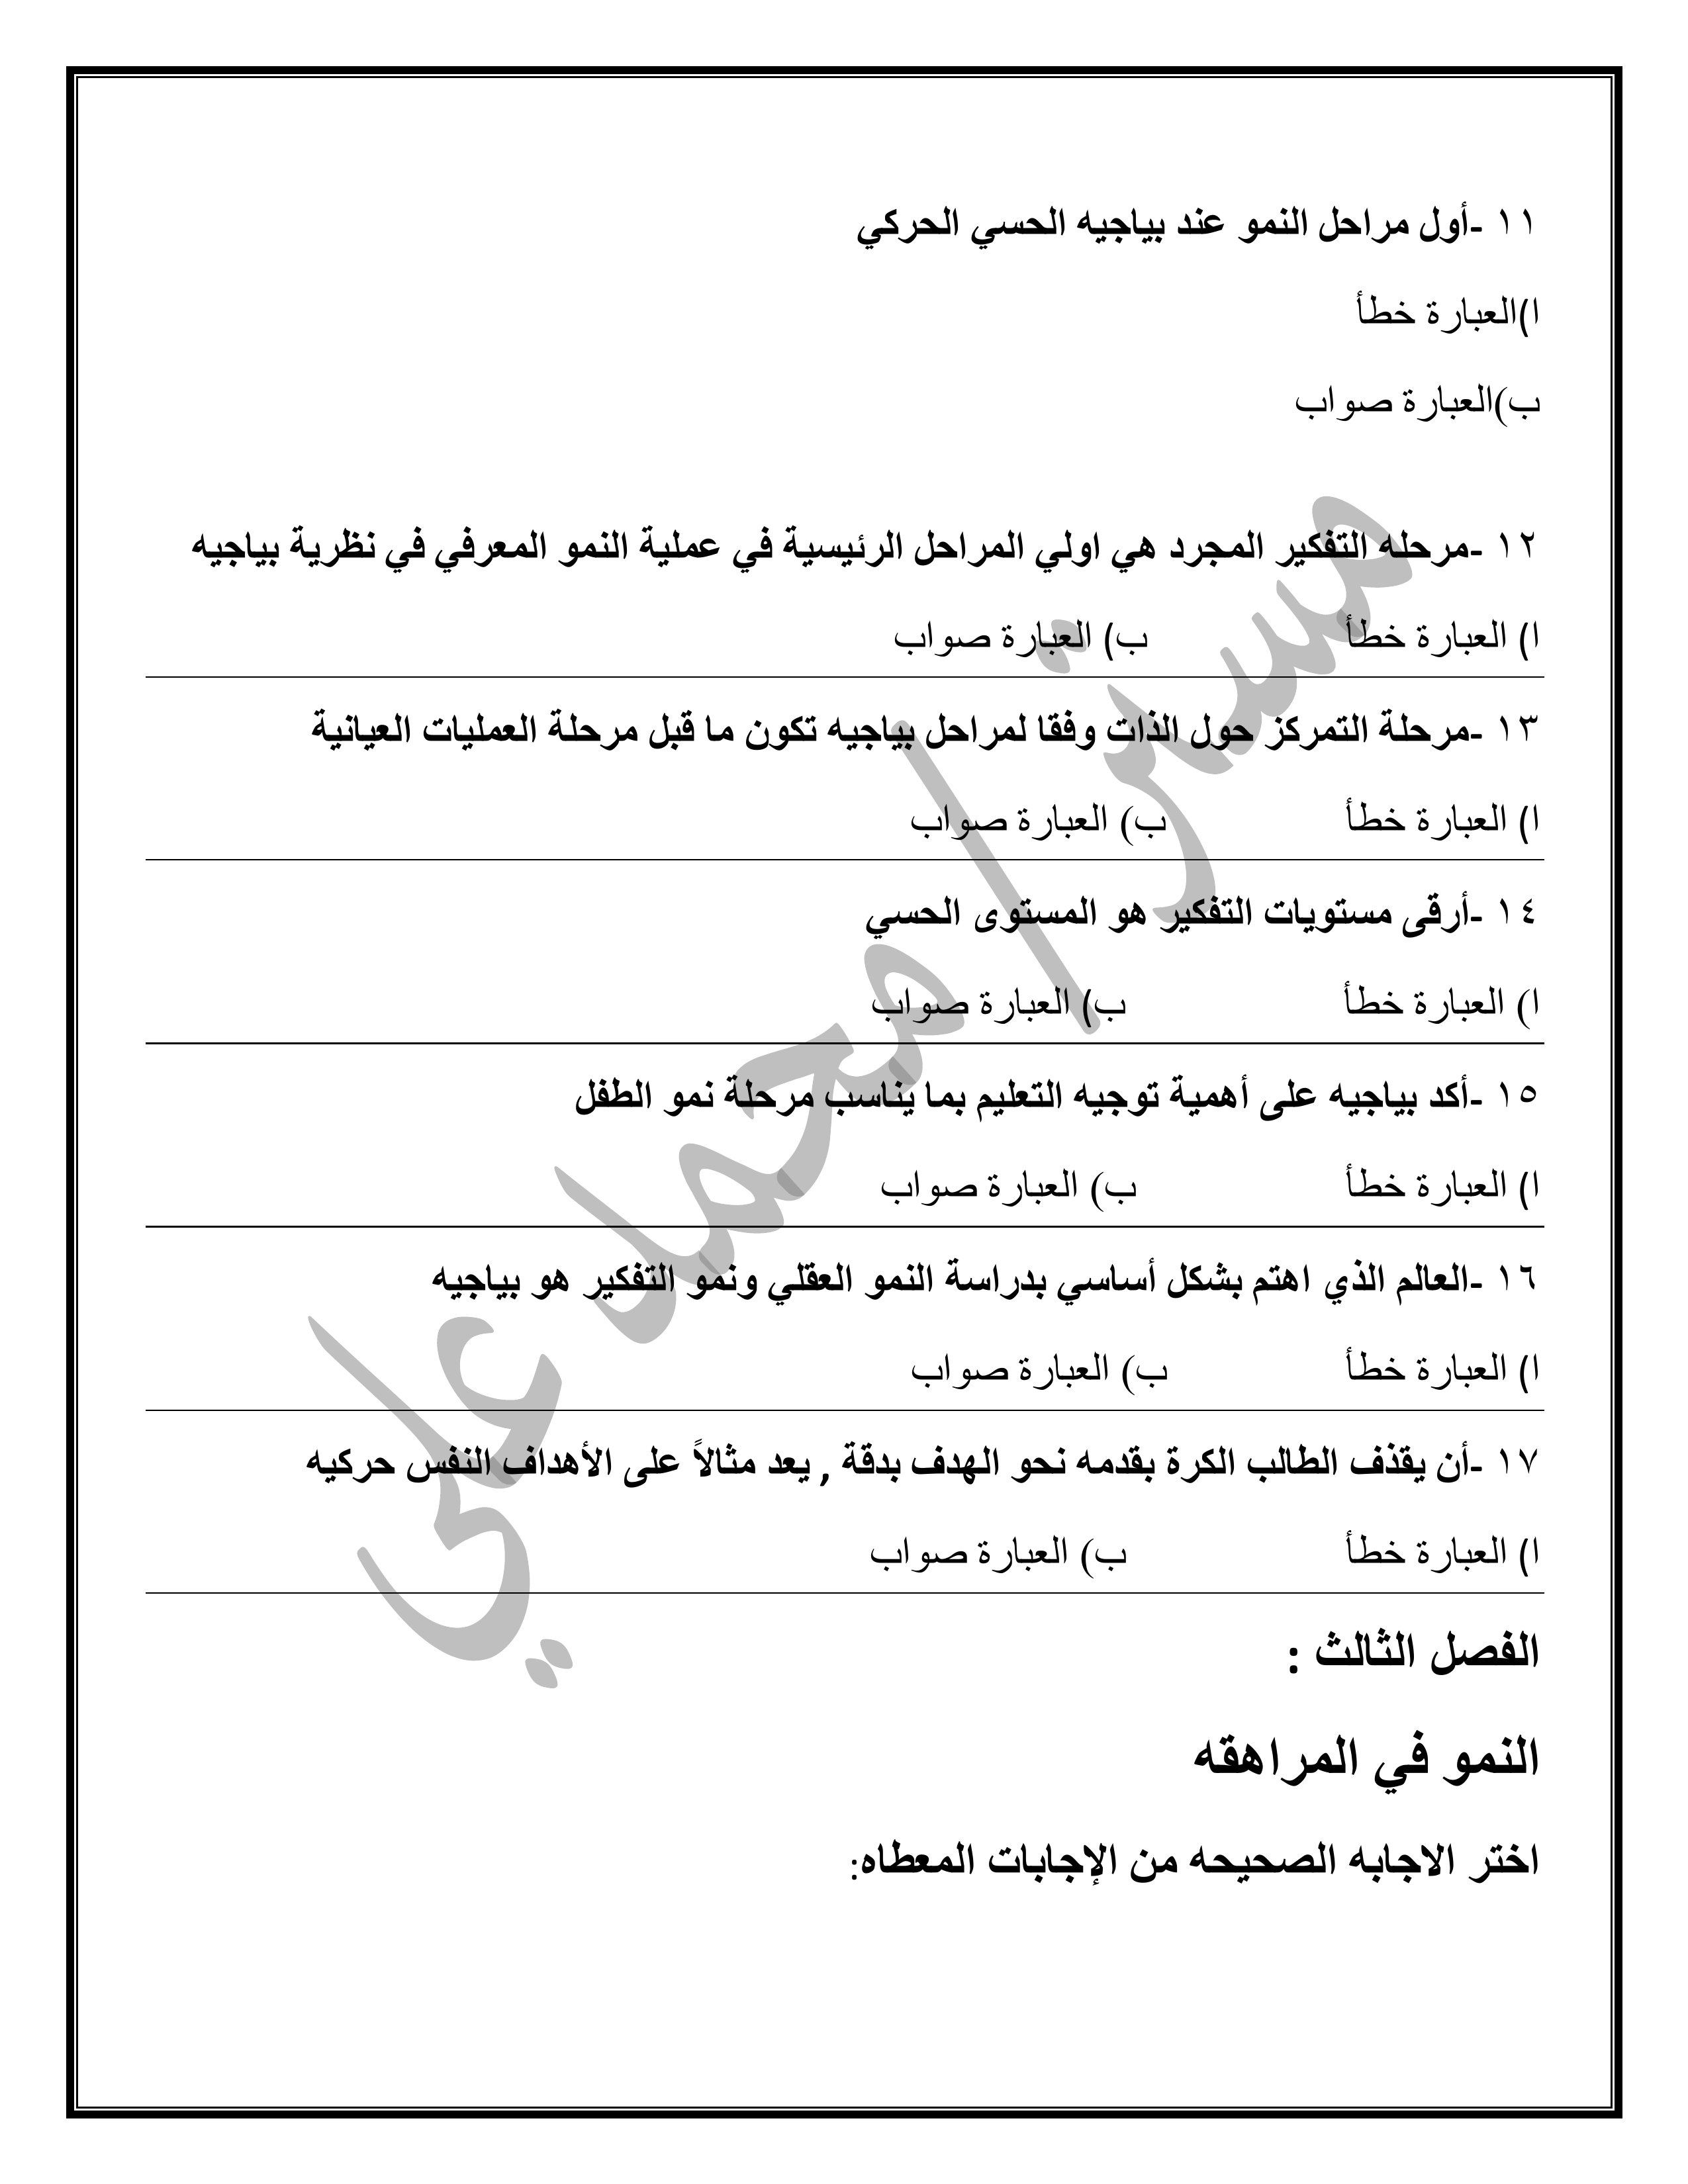 ١١ -أول مراحل النمو عند بياجيه الحسي الحركي
ا)العبارة خطأ
ب)العبارة صواب
١٢ -مرحله التفكير المجرد هي اولي المراحل الرئيسية في عملية النمو المعرفي في نظرية بياجيه
ا) العبارة خطأ ب) العبارة صواب
١٣ -مرحلة التمركز حول الذات وفقا لمراحل بياجيه تكون ما قبل مرحلة العمليات العيانية
ا) العبارة خطأ ب) العبارة صواب
١٤ -أرقى مستويات التفكير هو المستوى الحسي
ا) العبارة خطأ ب) العبارة صواب
١٥ -أكد بياجيه على أهمية توجيه التعليم بما يناسب مرحلة نمو الطفل
ا) العبارة خطأ ب) العبارة صواب
١٦ -العالم الذي اهتم بشكل أساسي بدراسة النمو العقلي ونمو التفكير هو بياجيه
ا) العبارة خطأ ب) العبارة صواب
١٧ -أن يقذف الطالب الكرة بقدمه نحو الهدف بدقة , يعد مثالاً على الأهداف النفس حركيه
ا) العبارة خطأ ب) العبارة صواب
الفصل الثالث :
النمو في المراهقه
اختر الاجابه الصحيحه من الإجابات المعطاه:
مستر/ محمد علي